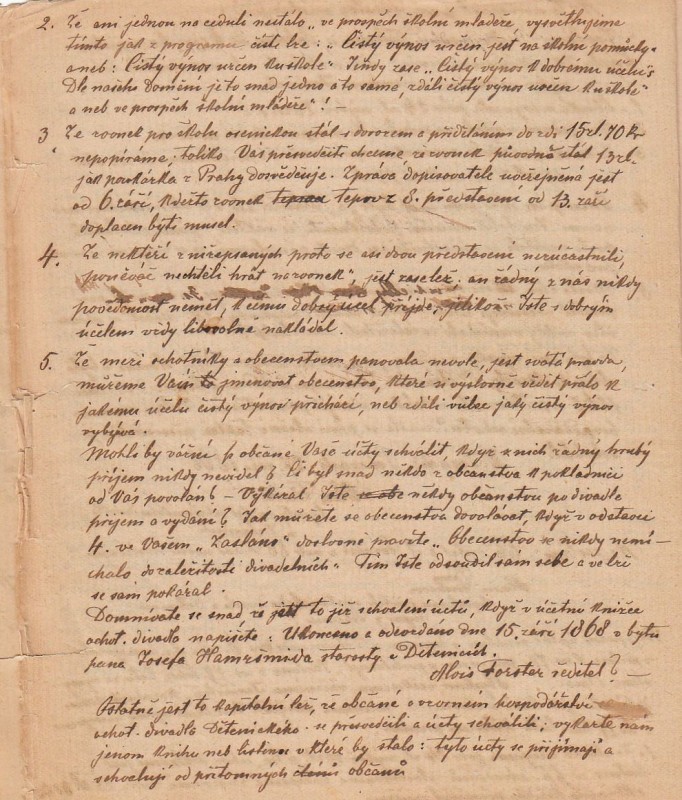 2. Že ani jednou na ceduli nestálo „ve prospěch školní mládeže, vysvětlujeme
tímto jak z programu čísti lze: „Čistý výnos určen jest na školní pomůcky"
aneb: Čistý výnos určen ku škole" Jindy zase „Čistý výnos k dobrému účelu"
Dle našeho domění je to snad jedno a to samé, zdáli čistý výnos určen ku škole"
a neb ve prospěch školní mládeže"! —
3 Že zvonek pro školu osenickou stál s dovozem a přiděláním do zdi 15 zl. 70 kr
nepopíráme; toliko Vás přesvědčiti chceme, že zvonek původně stál 13 zl.
jak poukázka z Prahy dosvědčuje. Zpráva dopisovatele uveřejněná jest
od 6. září, kdežto zvonek teprv z 8. představení od 13. září
doplacen býti musel.
4. Že někteří z nížepsaných proto se asi dvou představení nezúčastnili,
poněváč nechtěli hrát na zvonek", jest zase lež. an žádný z nás nikdy
povědomost neměl, k čemu dobrý účel přijde, jelikož Jste s dobrým
účelem vždy libovolně nakládal.
5. Že mezi ochotníky a obecenstvem panovala nevole, jest svatá pravda,
můžeme Vám jmenovat obecenstvo, které si výslovně vědět přálo k
jakému účelu čistý výnos přichází, neb zdáli vůbec jaký čistý výnos
vybývá.
Mohli by vážní p. občané Vaše účty schválit, když z nich žádný hrubý
příjem nikdy neviděl? Či byl snad někdo z občanstva k pokladnici
od Vás povolán? — Vykázal Jste někdy občanstvu po divadle
příjem a vydání? Jak můžete se obecenstva dovolávat, když v odstavci
4. ve Vašem „Zasláno" doslovně pravíte „Obecenstvo se nikdy nemí-
chalo do záležitostí divadelních" Tím Jste odsoudil sám sebe a ve lži
se sám pokáral.
Domníváte se snad že jest to již schválení účtů, když v účetní knížce
ochot. divadla napíšete: Ukončeno a odevzdáno dne 15. září 1868 v bytu
pana Josefa Hamršmida starosty v Dětenicích.
Alois Forster ředitel? —
Ostatně jest to kapitální lež, že občané o vzorném hospodářství
ochot. divadla Dětenického se přesvědčili a účty schválili; vykažte nám
jenom knihu neb listinu v které by stálo: tyto účty se přijímají a
schvalují od přítomných občanů